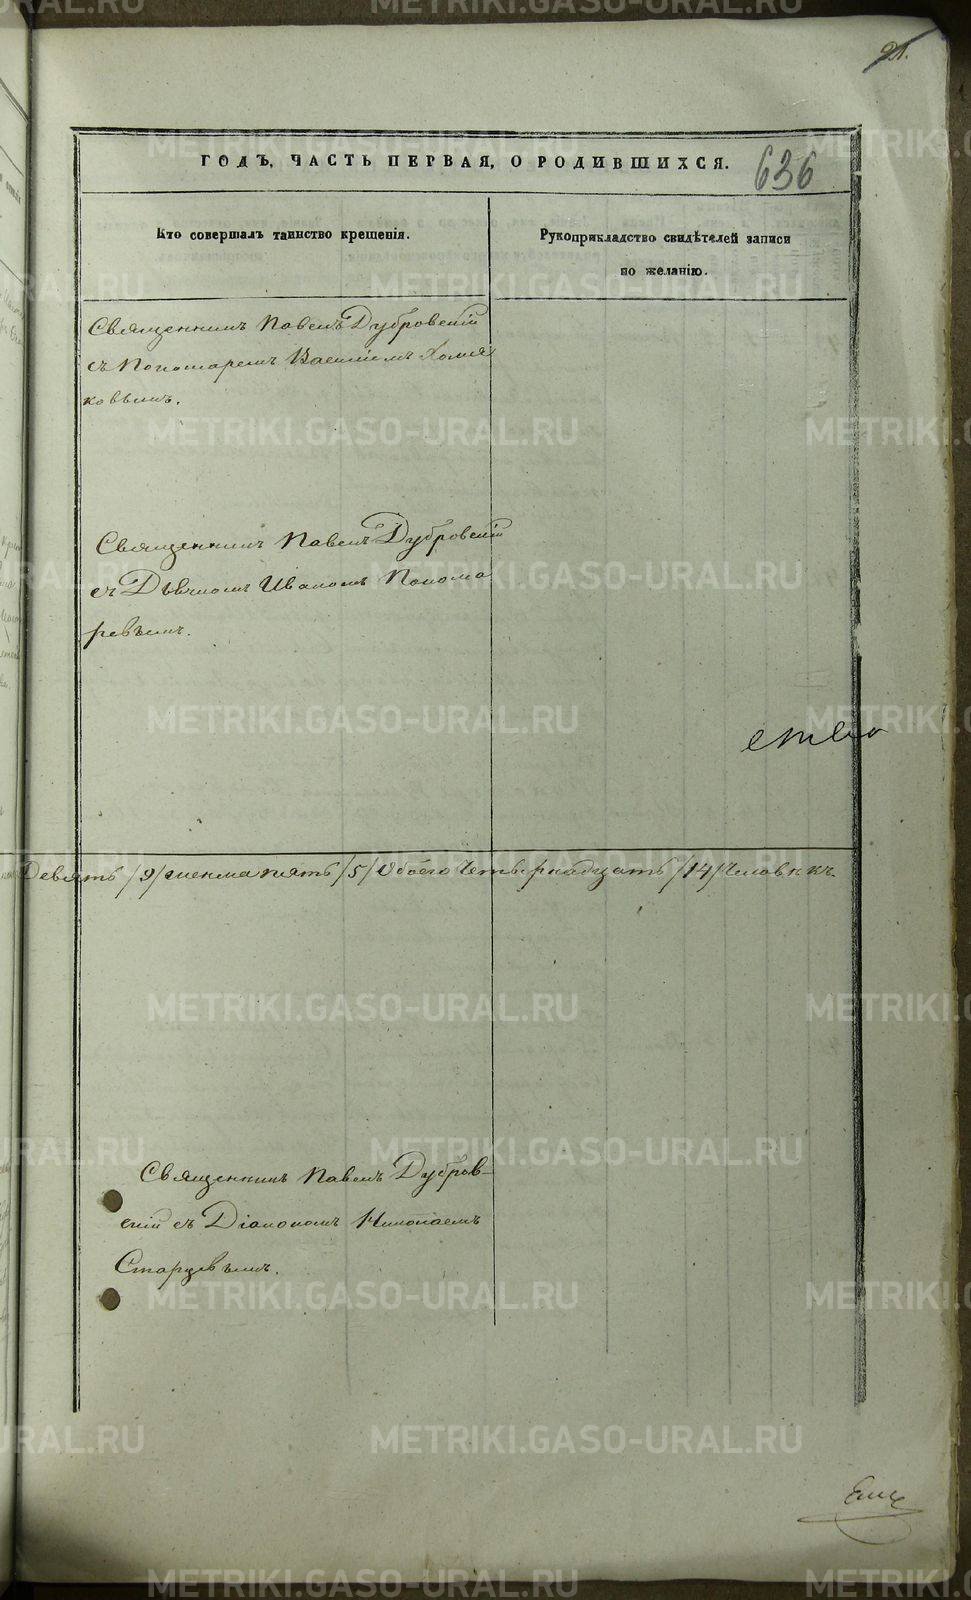 21.
ГОДЪ, ЧАСТЬ ПЕРВАЯ, О РОДИВШИХСЯ.
636
Кто совершалъ таинство крещенія.
Рукоприкладство свидѣтелей записи
по желанію.
Священникъ Павелъ Дубровскій
съ Пономаремъ Василіемъ Хомя
ковымъ.
Священникъ Павелъ Дубровскій
съ Дьячкомъ Иваномъ Понома
ревымъ.
Девять /9/ женска пять /5/ Обоего Четырнадцать /14/ Человѣкъ.
Священникъ Павелъ Дубров-
скій съ Діакономъ Николаемъ
Старцевымъ.
METRIKI.GASO-URAL.RU